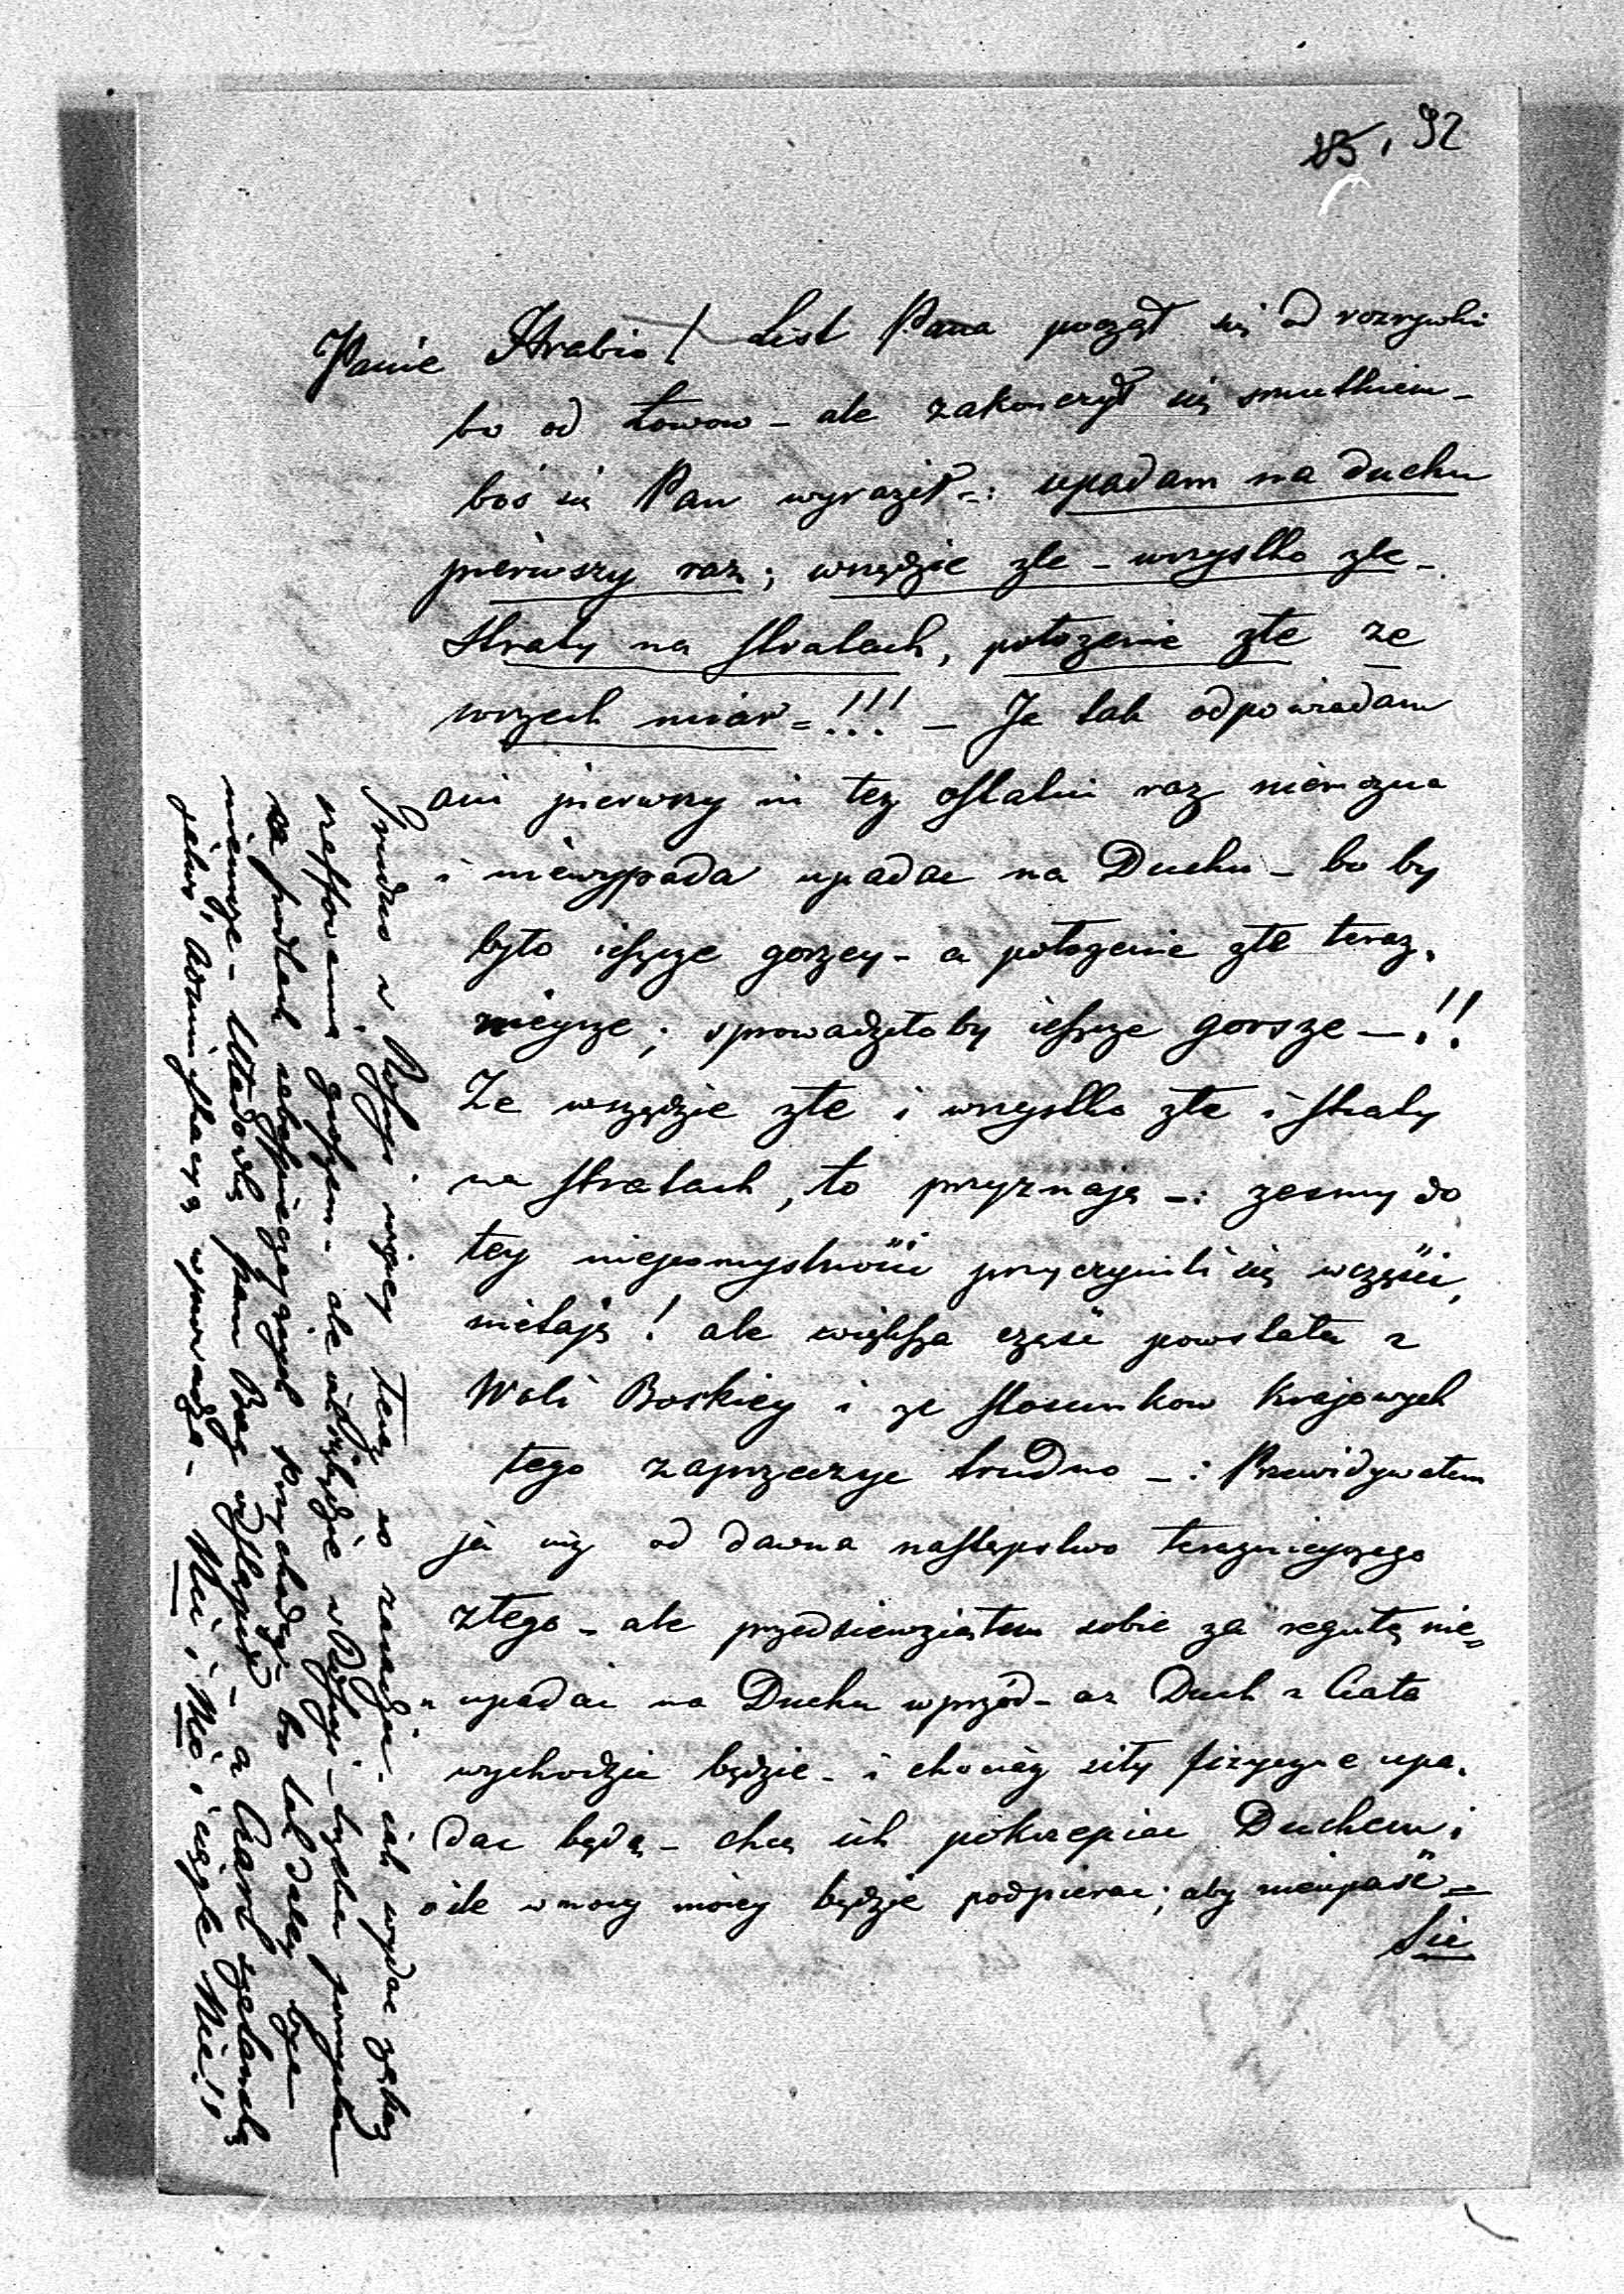 23, 92
Panie Hrabio! List Pana począł się od rozrywki
bo od Łowow – ale zakonczył się smutkiem –
boś się Pan wyraził –: upadam na duchu
pierwszy raz; wszędzie złe – wszystko złe –
straty na stratach, położenie złe ze
wszech miar = !!! – Ja tak odpowiadam
ani pierwszy ni tez ostatni raz niemozna
i niewypada upadac na Duchu – bo by
było ieszcze gorzey – a położenie złe teraz.
nieysze; sprowadziłoby ieszcze gorsze – !!
Ze wszędzie złe i wszystko złe i straty
na stratach, to przyznaję –: zesmy do
tey niepomyslności przyczynili się wczęści,
nietaję! ale większa część powstała z
Woli Boskiey i ze stosunkow Krajowych
tego zaprzeczyc trudno –: Przewidywałem
ja iuz od dawna następstwo terazniejszego
złego – ale przedsiewziąłem sobie za regułę nie=
upadać na Duchu wprzód – az Duch z Ciała
wychodzić będzie – i chociaż siły fizyczne upa.
dac będą – chcę ich pokrzepiac Duchem i
o ile w mocy moiey będzie podpierac; aby nieupaść =
Sie
Trudno w . więcey teraz co – iak wydac
grosem – ale w – trzeba
na przychodzi – bo tak daley byc
niemoze – Pan Bog – a Czart
wprowadza – Nic, i Nic, i ciągle Nic!!